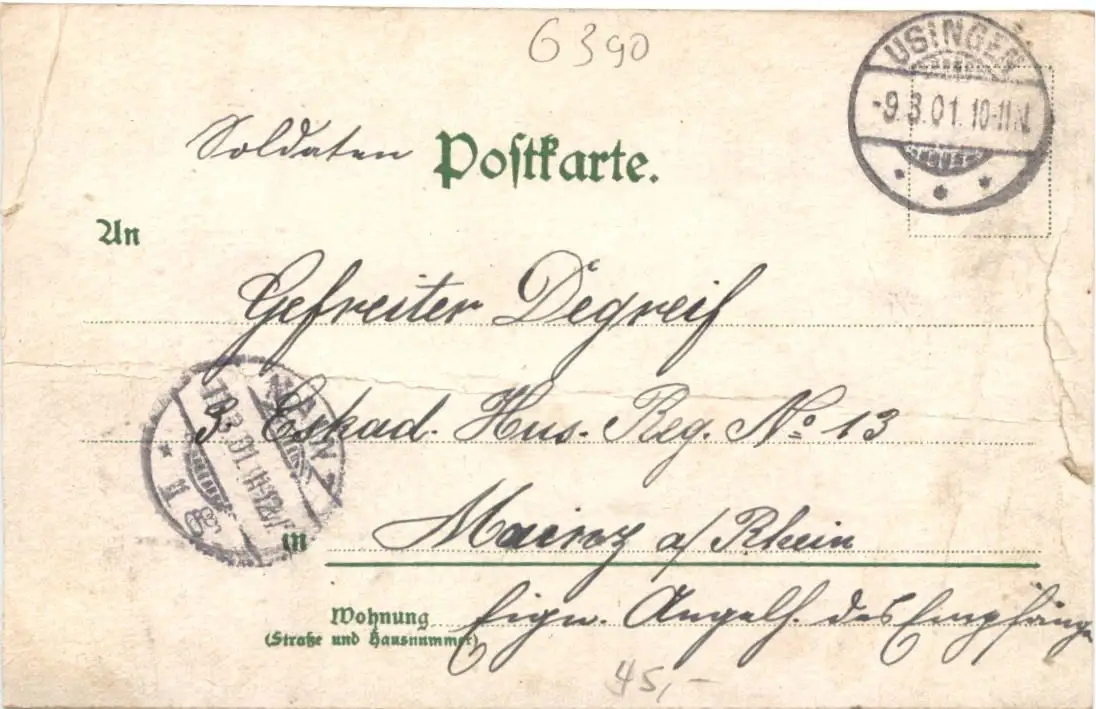 6390
USINGEN
-9.3.01. 10-11 N.
Soldaten Postkarte.
An
Gefreiter Degreif
3. Eskad. Hus. Reg. No 13
MAINZ
.3.01.
in Mainz a/ Rhein
Wohnung Eign. Angelh. des Empfängers
(Straße und Hausnummer)
45,-